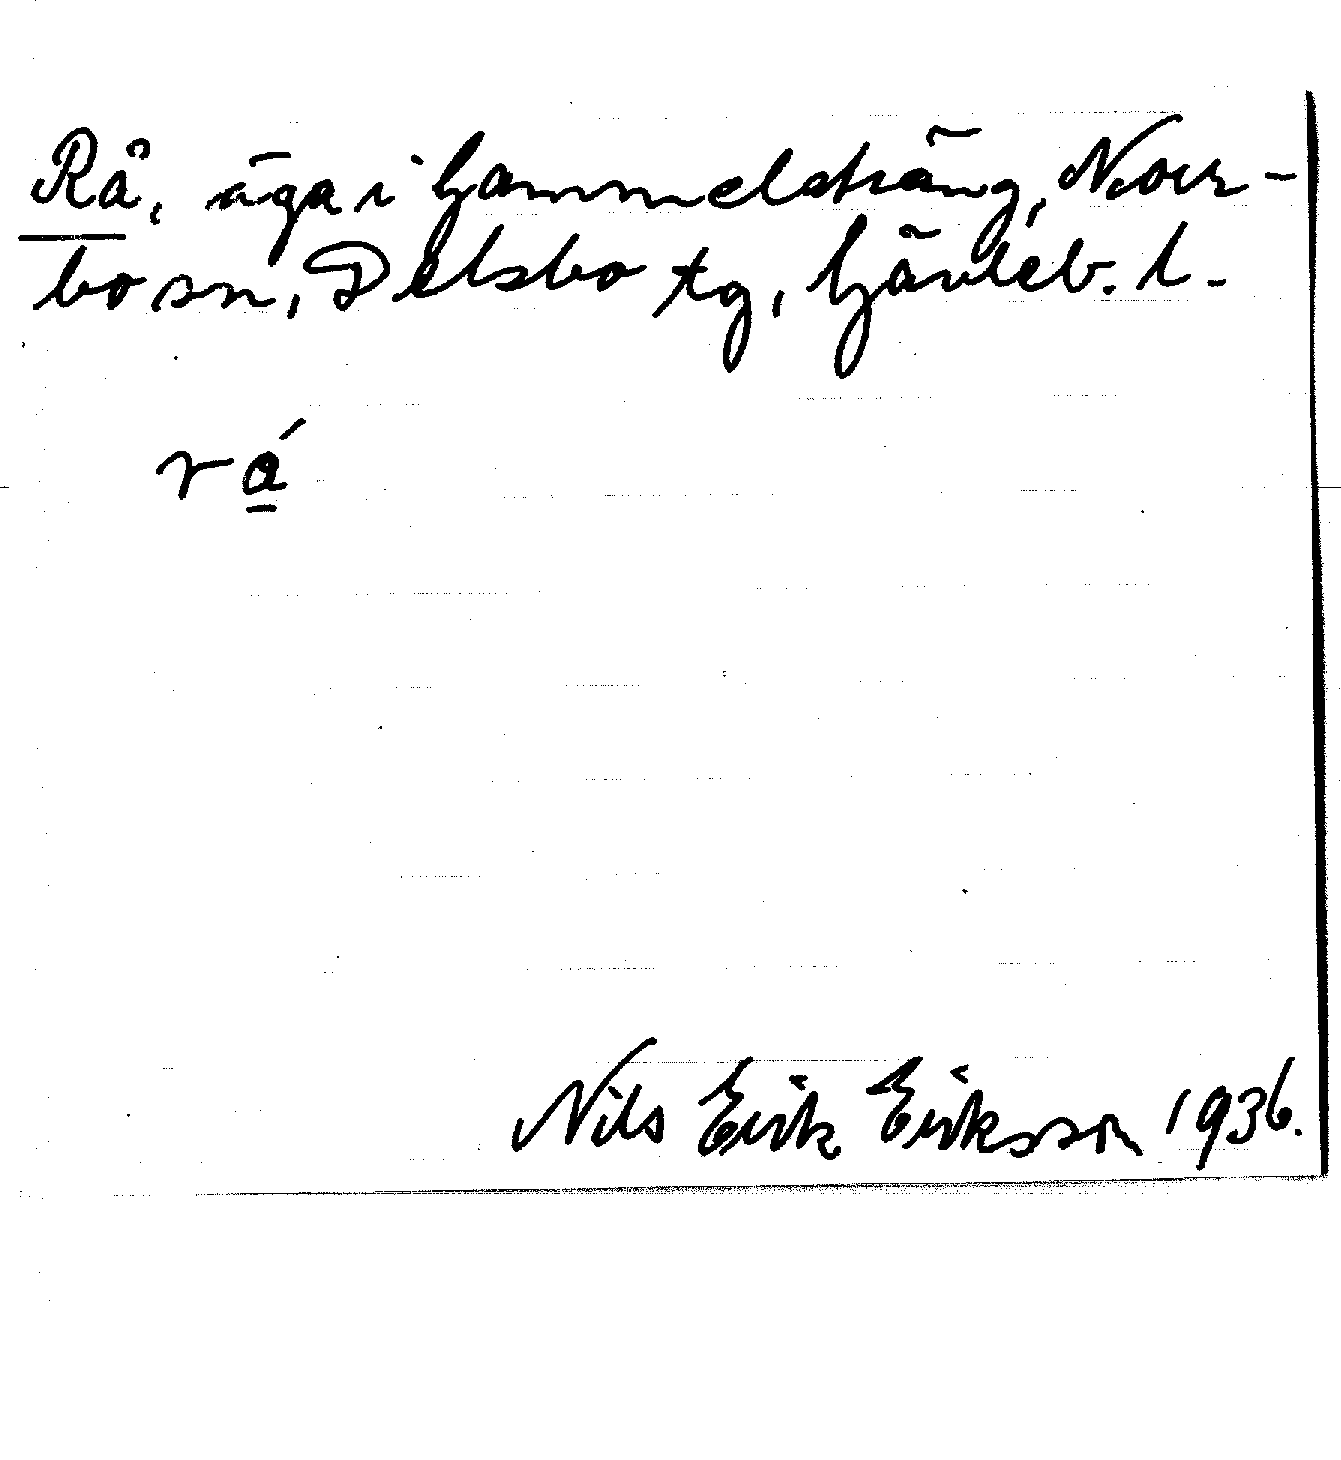 Rå, äga i Gammelsträng, Norr-
bo sn, Delsbo tg, Gävleb. l.
rá̱
Nils Erik Eriksson 1936.